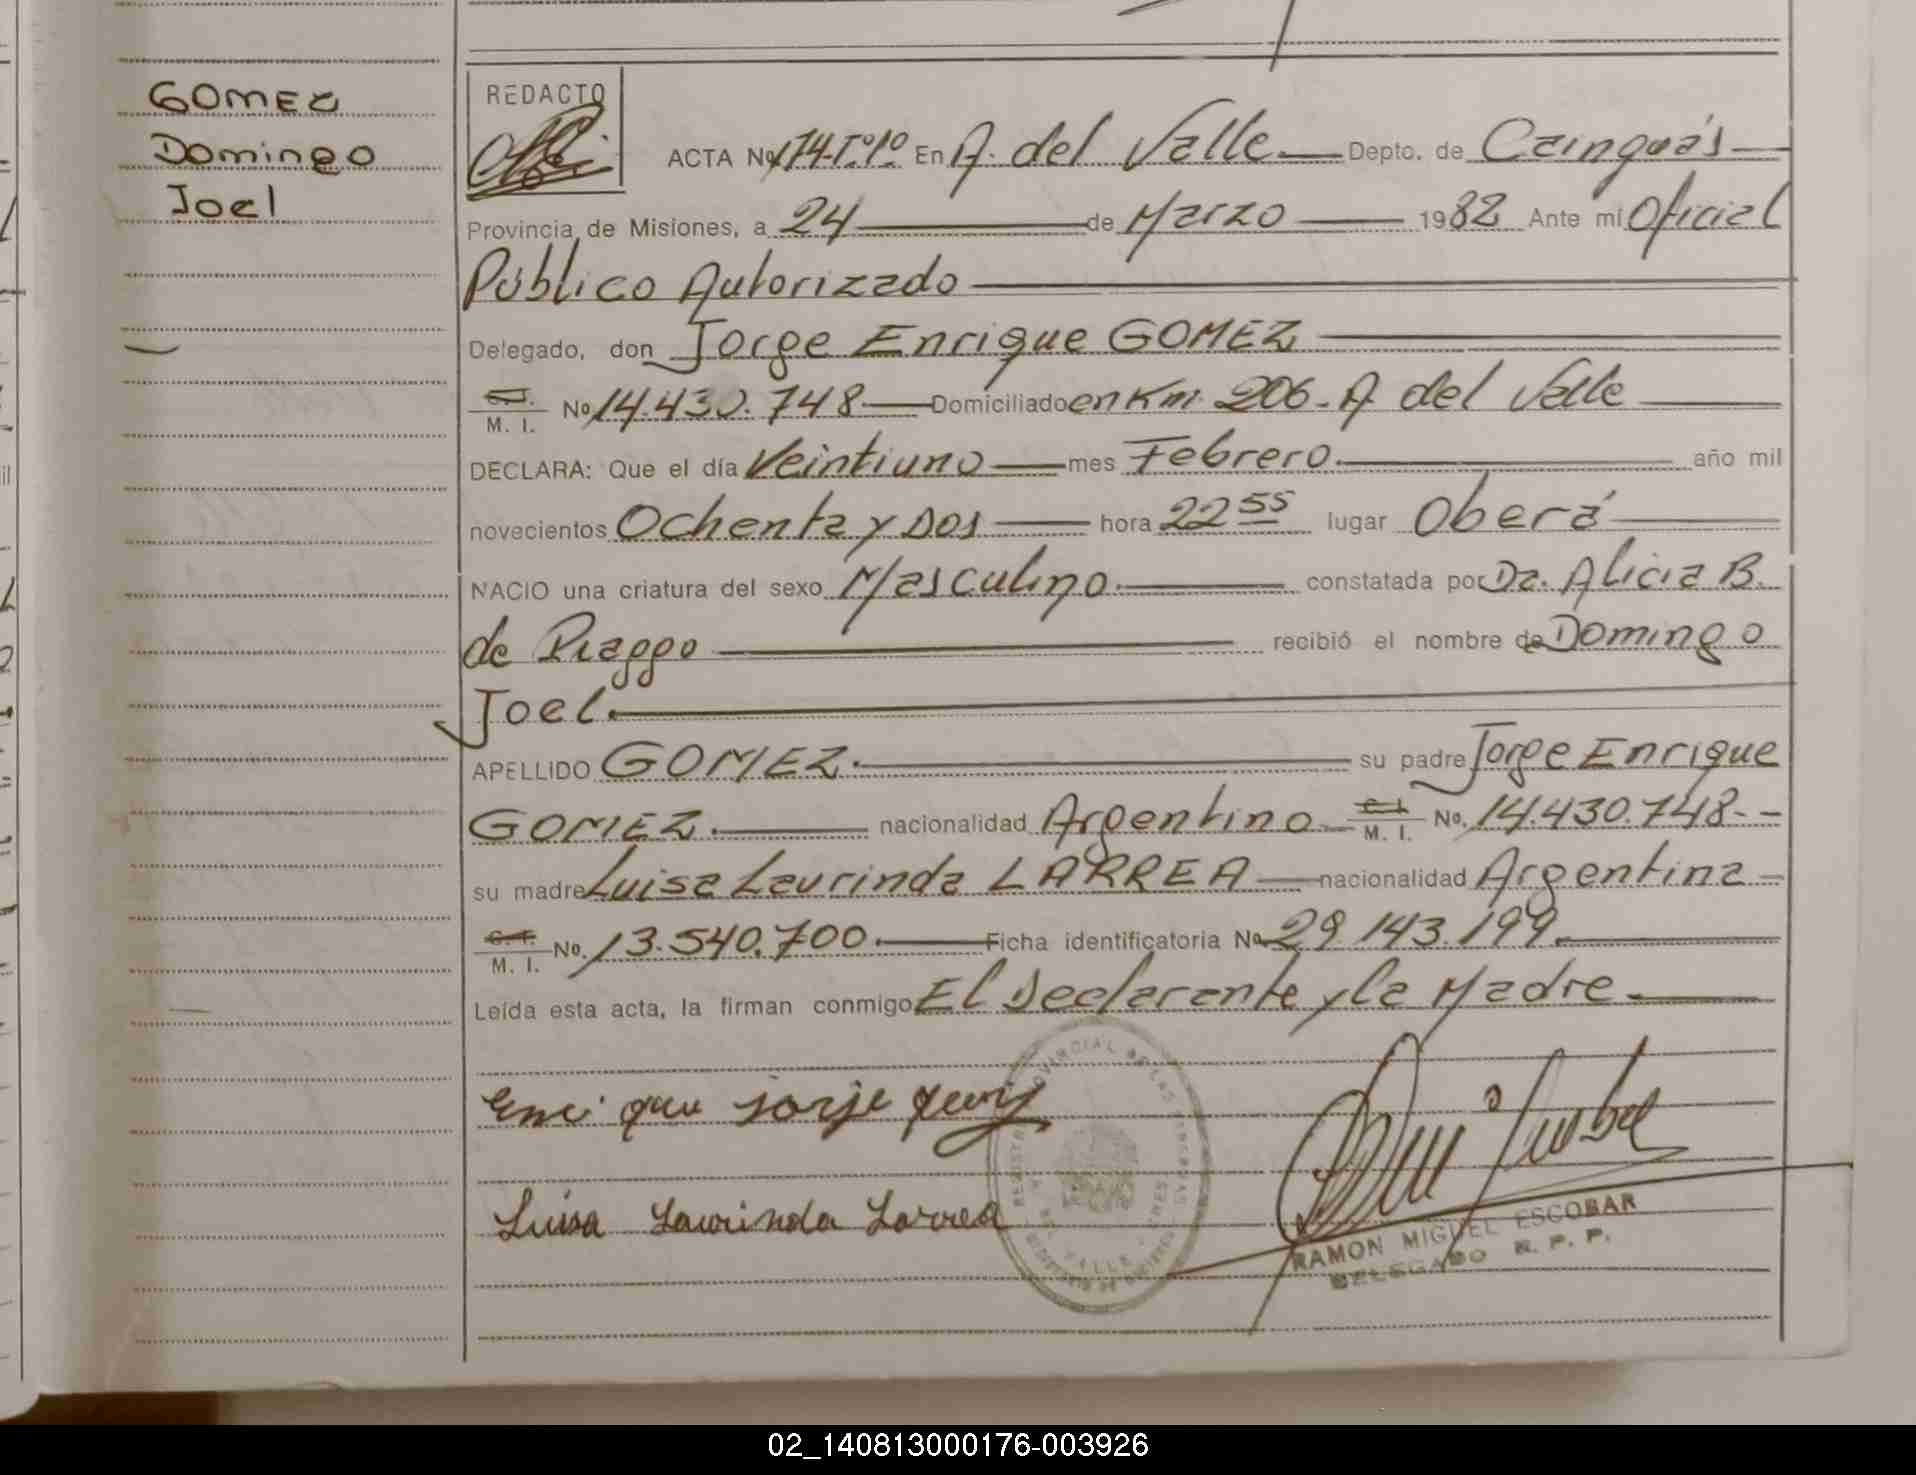 GOMEZ
Domingo
Joel
REDACTO
ACTA No 174-Tº1º En A. del Valle Depto. de Cainguás
Provincia de Misiones, a 24 de Marzo 1982 Ante mi Oficial
Público Autorizado
Delegado, don Jorge Enrique GOMEZ
C.I. M. I. No 14.430.748 Domiciliado en Km. 206 - A del Valle
DECLARA: Que el día Veintiuno mes Febrero. año mil
novecientos Ochenta y Dos hora 22 55 lugar Oberá
NACIO una criatura del sexo Masculino. constatada por Da. Alicia B.
de Piaggo recibió el nombre de Domingo
Joel.
APELLIDO GOMEZ. su padre Jorge Enrique
GOMEZ. nacionalidad Argentino C.I. M. I. No. 14.430.748--
su madre Luisa Laurinda LARREA nacionalidad Argentina
C.I. M. I. No. 13.540.700. Ficha identificatoria No 29 143.199.
Leída esta acta, la firman conmigo El Declarante y la Madre.
jorje
Luisa Laurinda Larrea
RAMON MIGUEL ESCOBAR
DELEGADO R. P. P.
02_140813000176-003926